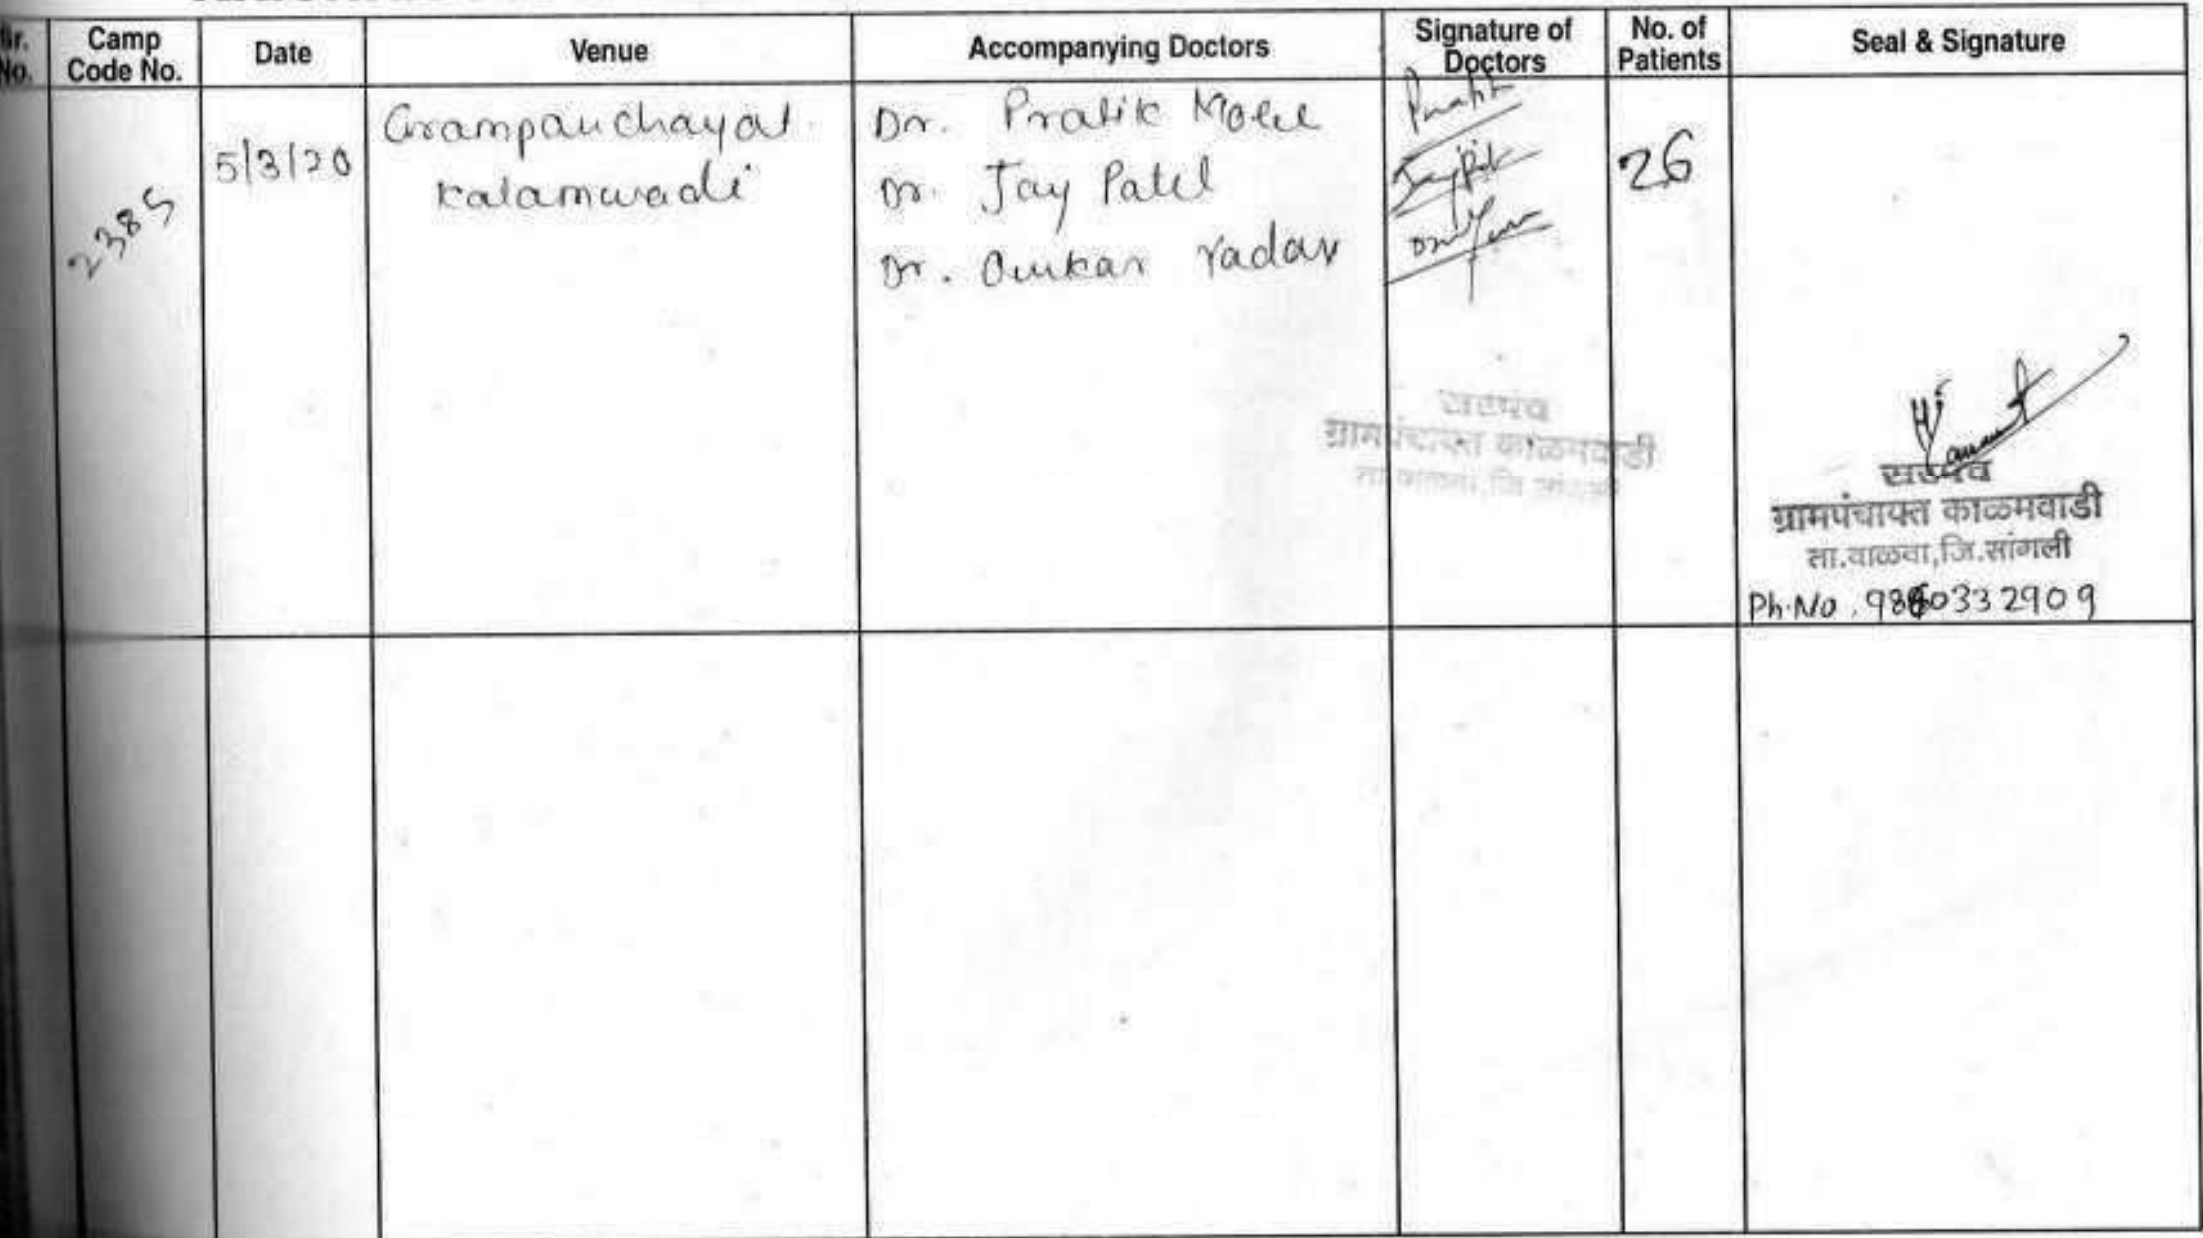 Sr. No.
Camp Code No.
Date
Venue
Accompanying Doctors
Signature of Doctors
No. of Patients
Seal & Signature
2385
5/3/20
Grampanchayat
Kalamwadi
Dr. Pratik
Dr. Jay Patel
Dr. Omkar Yadav
Pratik
26
सरपंच
ग्रामपंचायत काळमवाडी
सरपंच
ग्रामपंचायत काळमवाडी
ता.वाळवा,जि.सांगली
Ph.No.